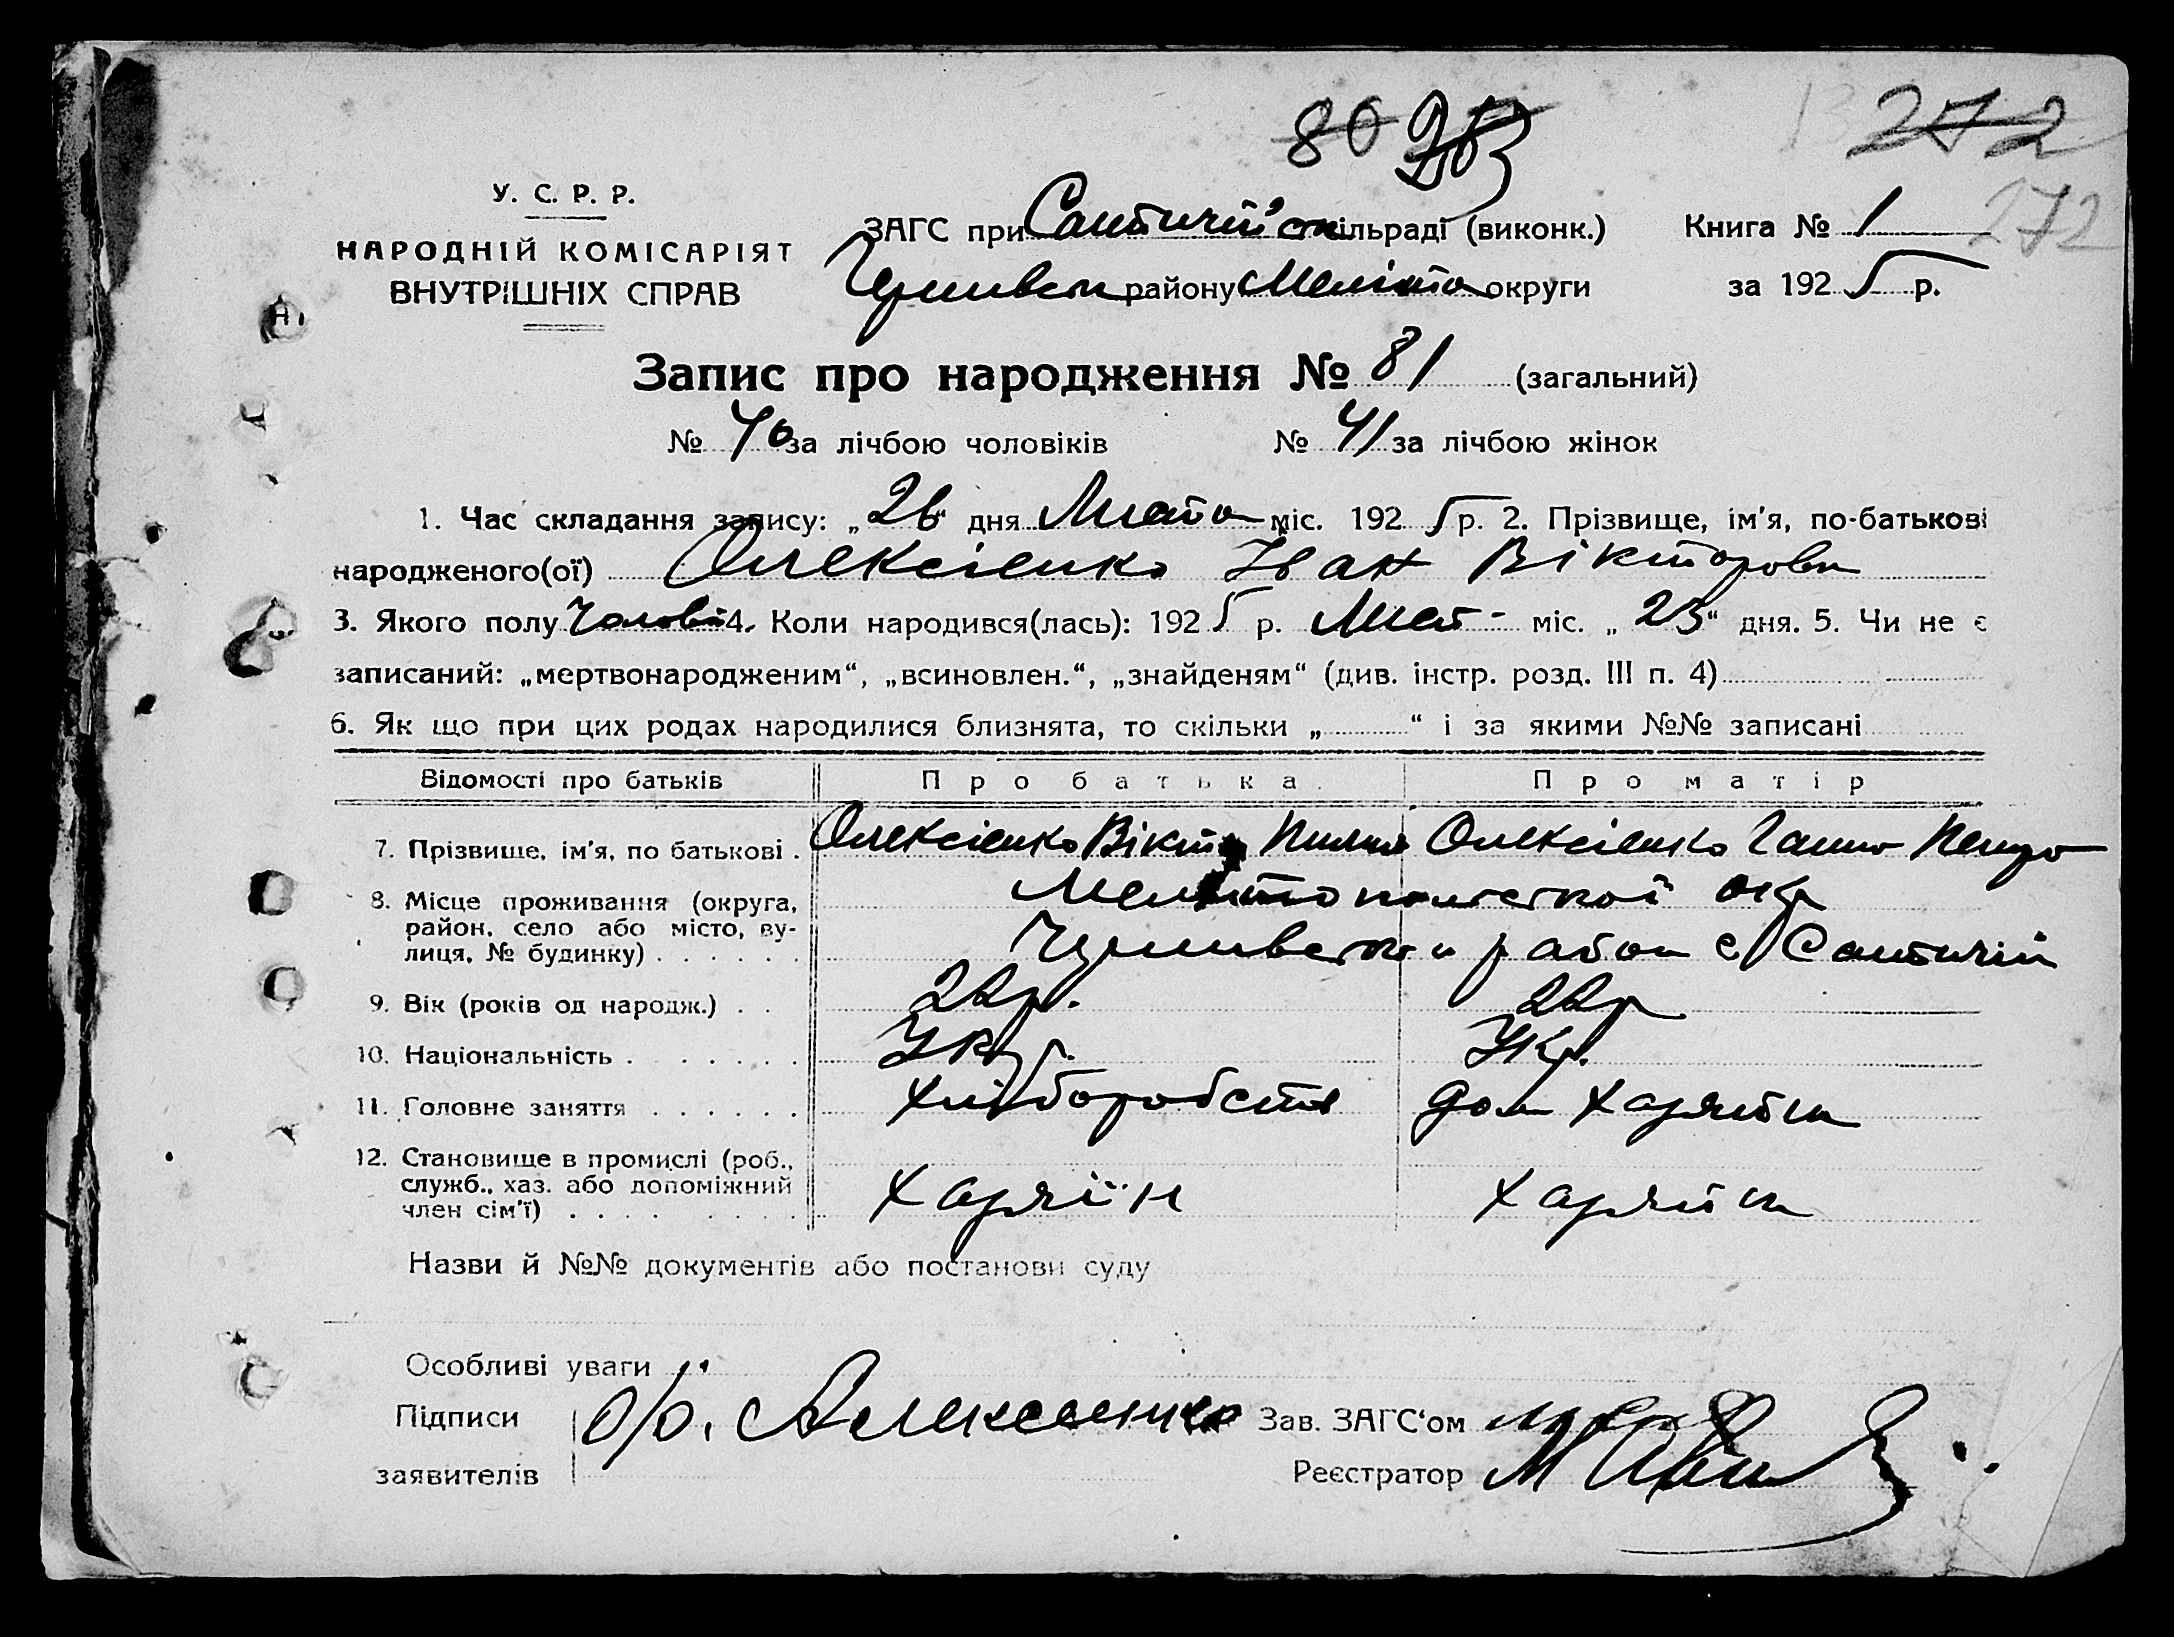 80 283
272
272
У. С. Р. Р.
НАРОДНІЙ КОМІСАРІЯТ
ВНУТРІШНІХ СПРАВ
ЗАГС при сільраді (виконк.) Книга № 1
району Меліто округи за 1925 р.
Запис про народження № 81 (загальний)
№ 40 за лічбою чоловіків № 41 за лічбою жінок
1. Час складання запису: „26“ дня Листо міс. 1925 р. 2. Прізвище, ім'я, по-батькові
народженого(ої) Олексієнко Іван Вікторови
3. Якого полу Чолові 4. Коли народився(лась): 1925 р. Лист- міс. „23“ дня. 5. Чи не є
записаний: „мертвонародженим“, „всиновлен.“, „знайденям“ (див. інстр. розд. III п. 4)
6. Як що при цих родах народилися близнята, то скільки „ “ і за якими №№ записані
Відомості про батьків Про батька Про матір
7. Прізвище, ім'я, по батькові . Олексієнко Віктор Олексієнко Ганна
8. Місце проживання (округа, Мелітопольської окр
район, село або місто, ву-
лиця, № будинку) . . . . . . район с
9. Вік (років од народж.) . . 22р. 22р
10. Національність . . . . . . . Укр. Укр.
11. Головне заняття . . . . . . хліборобство дом хазяйка
12. Становище в промислі (роб.,
служб., хаз. або допоміжний хазяїн хазяйка
член сім'ї) . . . . . . . .
Назви й №№ документів або постанови суду
Особливі уваги
Підписи Алексеенко Зав. ЗАГС'ом
заявителів Реєстратор